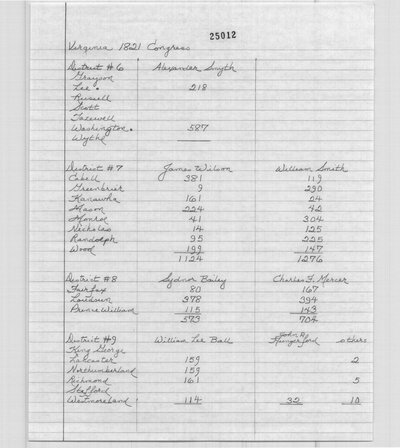 25012
Virginia 1821 Congress
District #6 Alexander Smyth
Grayson
Lee. 218
Russell
Scott
Tazewell
Washington. 587
Wythe
District #7 James Wilson William Smith
Cabell 381 119
Greenbrier 9 290
Kanawha 161 24
Mason 224 42
Monroe 41 304
Nicholas 14 125
Randolph 95 225
Wood 199 147
1124 1276
District #8 Sydnor Bailey Charles F. Mercer
Fairfax 80 167
Loudoun 378 394
Prince William 115 143
573 704
District #9 William Lee Ball John P. Hungerford others
King George
Lancaster 159 2
Northumberland 159
Richmond 161 5
Stafford
Westmoreland 114 32 10